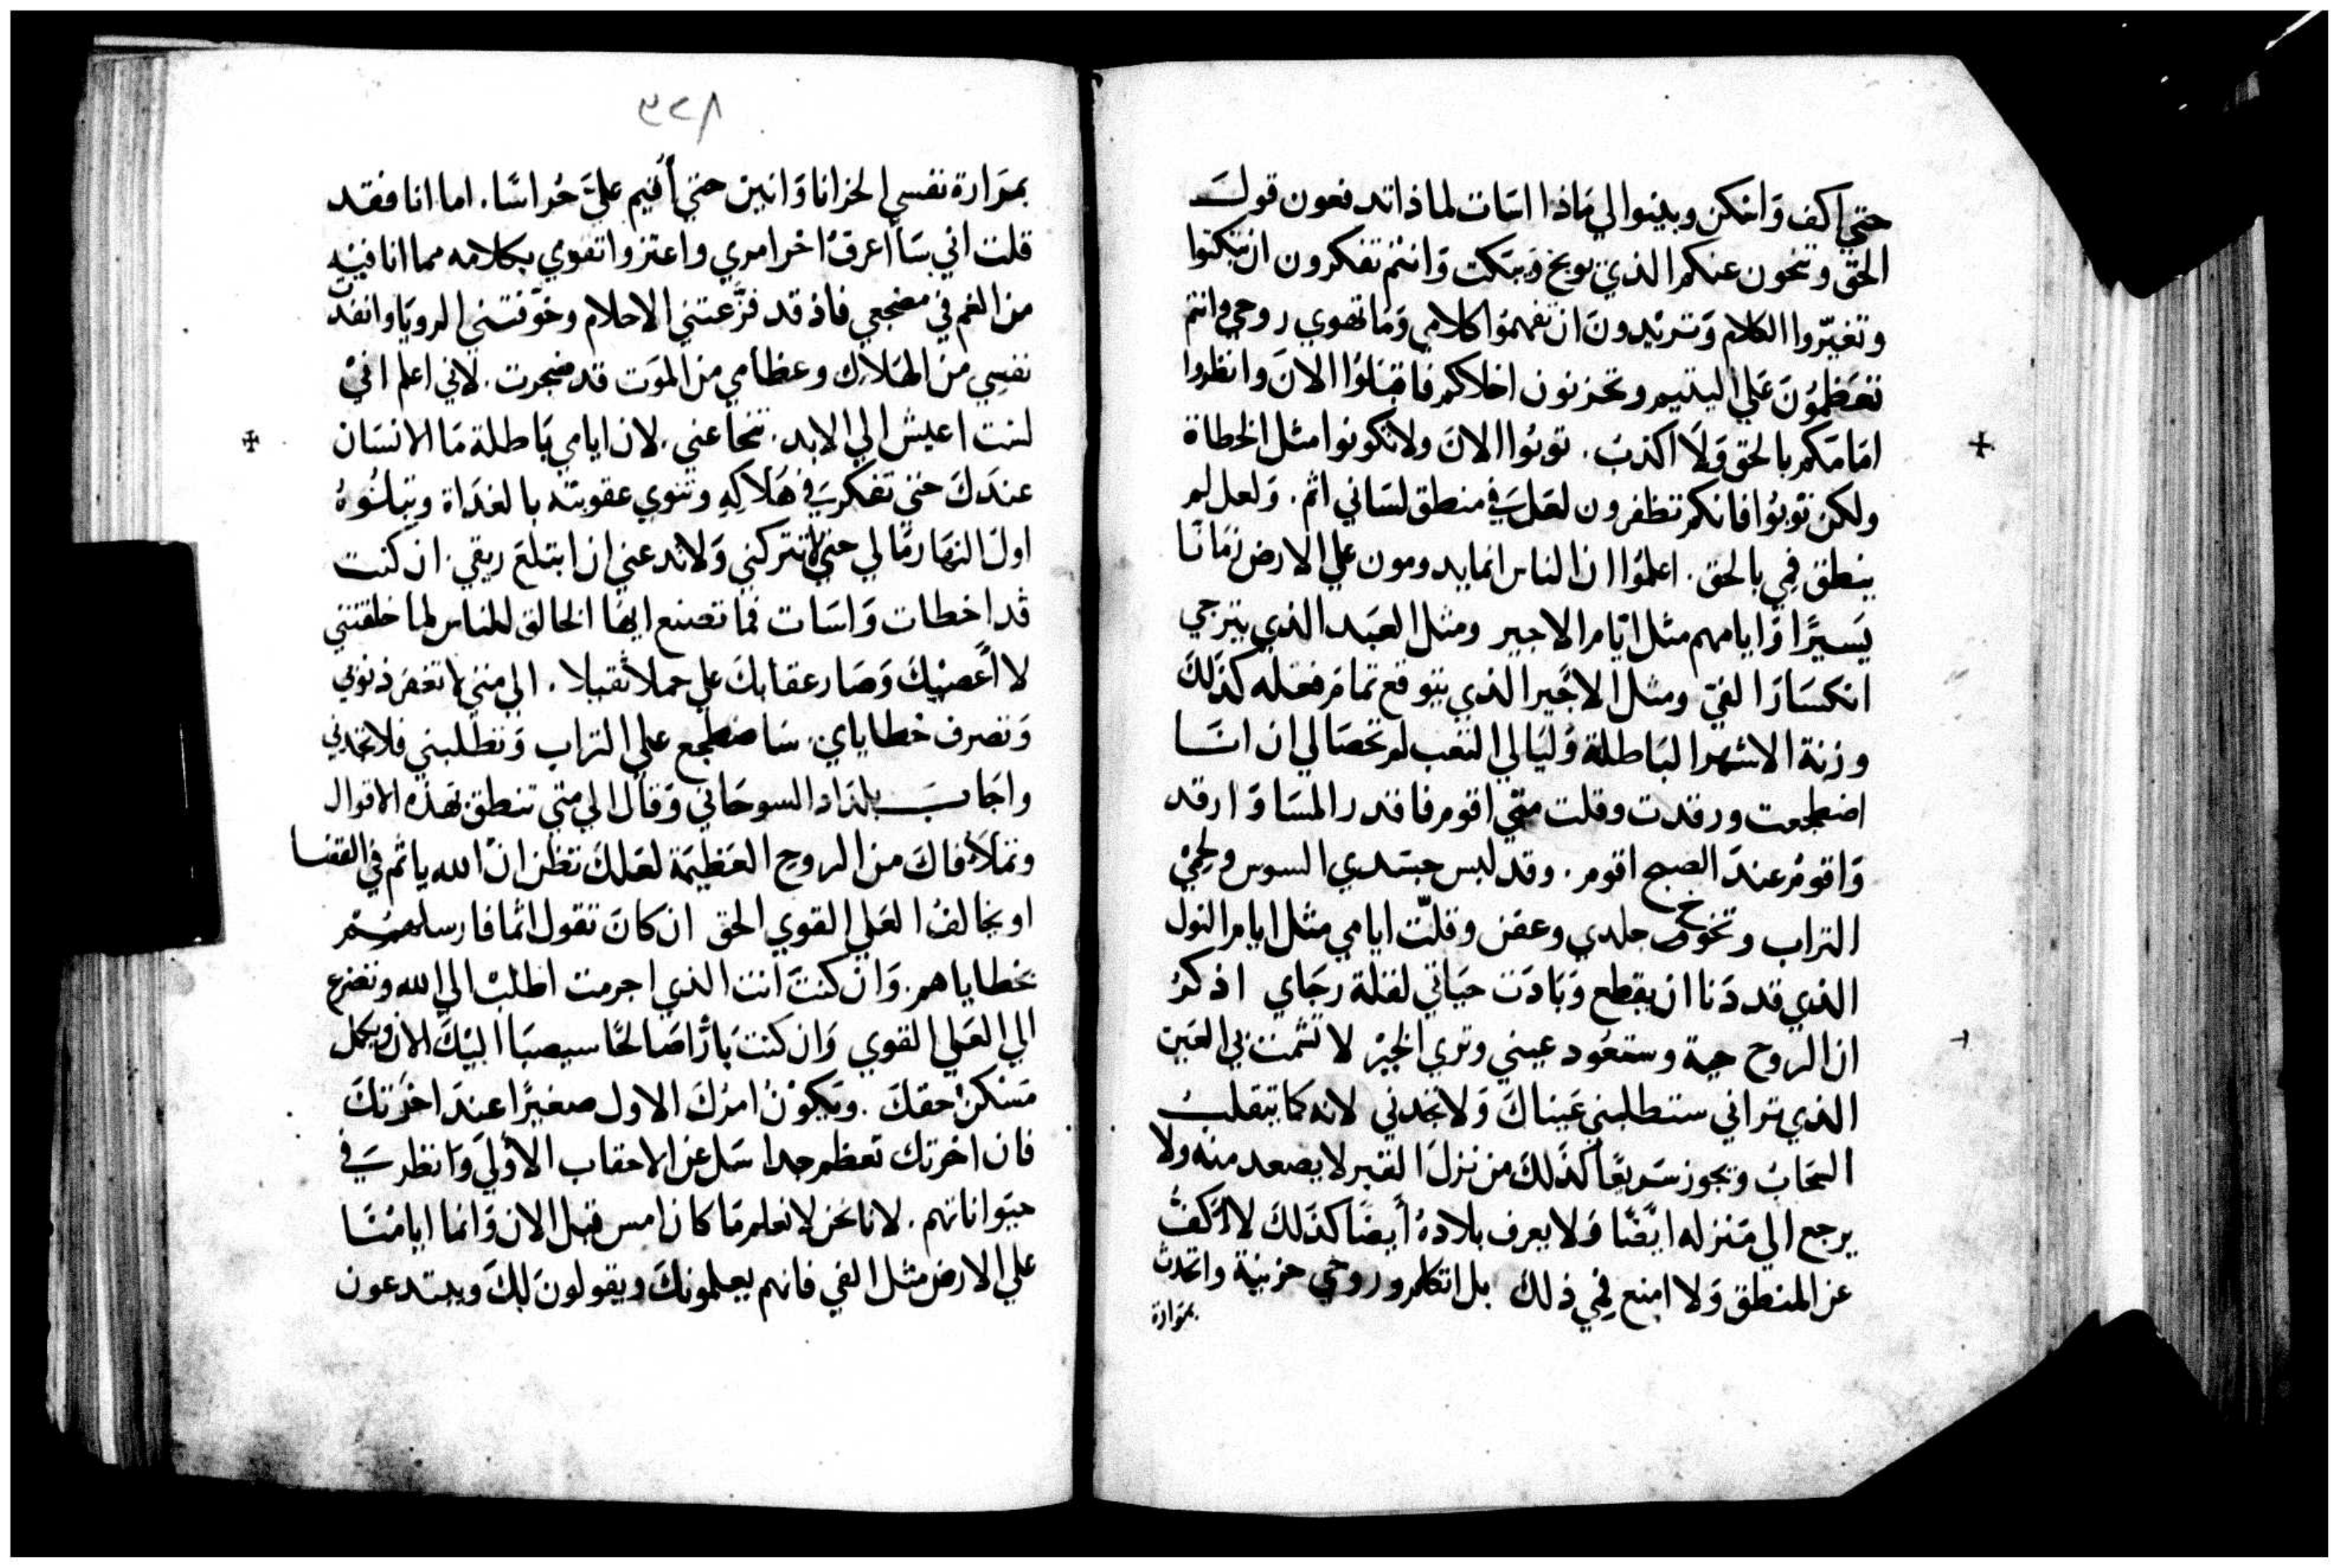 حتي اكف وَاتمكن وبينوا لي مَاذا اسَات لماذا تدفعون قولَ
الحق وتنحون عنكم الذي يوبخ ويبَكت وَانتم تفكرون ان تبكتوا
وتغيّروا الكلام وَتريَدونَ ان تفهموُا كلامي وَمَا تهوي روحي وانتم
تتعَظموُنَ عَلي اليتيم وتحزنون اخلاكم فاقبَلوُا الانَ وانظروا
امَامَكم بالحق وَلَا اكذبُ. توبُوا الانَ ولا تكونوا مثل الخطاة
ولكن توُبوُا فانكم تظفرون لعَلَ في منطق لسَاني اثم. وَلعل لم
ينطق فمِي بالحق. اعلموُا ان الناس انما يدومون علي الارض زمَانًا
يَسيرًا وَايامهم مثل ايّام الاجير ومثل العبَد الذي يترجي
انكسَار الفيّ ومثل الاجَير الذي يتوقع تمامَ فعَله كذَلكَ
وزنة الاشهر البَاطلة وَليَالي التعب لم تحصَا لي ان انسَا
اضطجعت ورقدت وقلت متي اقوم فاقدر المسَا وَارقد
وَاقومُ عندَ الصبح اقوم. وقد لبس جسَدي السوس ولحِميْ
التراب وتخوخ جلدي وعفن وقلّت ايامي مثل ايام النول
الذي قد دَنا ان يقطع وَبَادَت حيَاتي لقلة رجَاي اذكرُ
ان الروح حية وستعُود عيني وتري الخيرْ لا تشمت بي العَين
الذي تراني ستطلبني عَيناكَ وَلا تجدني لانه كما يتقلبُ
السحَابُ ويجوز سَريعًا كذَلكَ من نزلَ القبر لا يصعد منه ولا
يرجع الي مَنزله ايضًا وَلا يعرف بلادهُ أيضًا كذَلكَ لا اكَفُ
عن المنطق وَلا امنع فمِي ذلك بل اتكلم وروحي حزينة واتحدث
بمَرَارة
٣٢٨
بمرَارة نفسي الحزانا وَانين حتي أُقيم عليَّ حُراسًا. اما انا فقد
قلت اني سَأعرفُ اخر امري واعتز واتقوي بكلامه مما انا فيْه
من الغم في مضجعي فاذ قد فزَّعتني الاحلام وخوّفتني الرويَا وانفذ
نفسِي من الهَلاك وعظامي من الموَت قد ضجرت. لاني اعلم انيْ
لست اعيش الي الابد. تنحَا عني. لان ايامي بَاطلة مَا الانسَان
عندَكَ حتي تفكرَ في هَلاكِهِ وتنوي عقوبتَه بالغدَاة وتبلُوهُ
اولَ النهَار مَا لي حتي لا تتركني وَلا تدعني ان ابتلعَ ريقي. ان كنت
قد اخطات وَاسَات فما تصنع ايهَا الخالق للناس لما خلقتني
لا اعَصيكَ وَصَار عقابكَ علي حملا ثقيلا. الي متي لا تغفر ذنوبي
وَتصرف خطاياي. سَا ضطجع علي التراب وَتطلبني فلا تجدني
واجَابَ بلدَاد السوحَاني وَقال الي متي تنطق بهَذه الاقوال
وتملأ فاكَ من الروح العَظيمَة لعَلكَ تظن انْ الله ياثم في القضا
او يخالفُ العَلي القوي الحق ان كانَ تقول اثما فارسلهم
بخطاياهم. وَان كنتَ انت الذي اجرمت اطلبُ الي الله وتضرع
الي العَلي القوي وَان كنت بَارًا صَالحًا سيصبَا اليْكَ الان ويكمل
مَسْكن حقكَ. ويَكوُنْ امرُكَ الاول صغيرًا عندَ اخرَتكَ
فان اخرتك تعظم جدا سَل عن الاحقاب الأولَي وَانظر في
حيَواناتهم. لانا نحن لا نعلم مَا كان امس قبل الان وَانما ايامُنَا
علي الارض مثل الفي فانهم يعلمونكَ ويقولونَ لكَ ويبتدعون